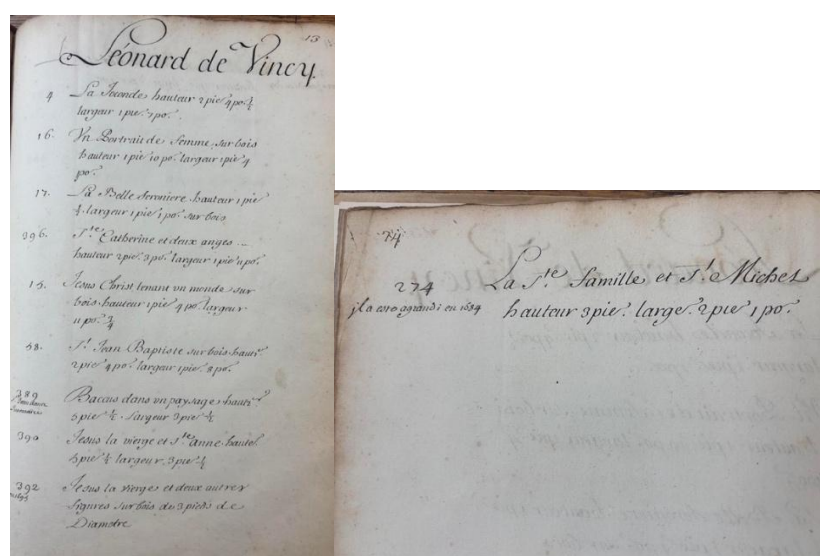 13
Léonard de Vincy
4 La Joconde hauteur 2 pie 4 po. ½
largeur 1 pie. 7 po.
16. Vn Portrait de femme, sur bois
hauteur 1 pie 10 po. largeur 1 pie 4
po.
17. La Belle feroniere hauteur 1 pie
largeur 1 pie 1 po. sur bois
396. Ste Catherine et deux anges
hauteur 2 pie. 3 po. largeur 1 pie 11 po.
15. Jesus Christ tenant vn monde sur
bois hauteur 1 pie 4 po. largeur
11 po.
58. St Jean Baptiste sur bois haut.
2 pie 4 po. largeur 1 pie. 8 po.
389 Baccus dans vn paysage haut.
5 pie ½ Largeur 3 pie ½
390 Jesus la vierge et Ste anne haut.
5 pie ½ largeur 3 pie ½
392 Jesus la vierge et deux autres
figures sur bois de 3 pieds de
Diamotre
74
274 La Ste famille et St Michel
jl a esté agrandi en 1684 hauteur 3 pie. large. 2 pie 1 po.